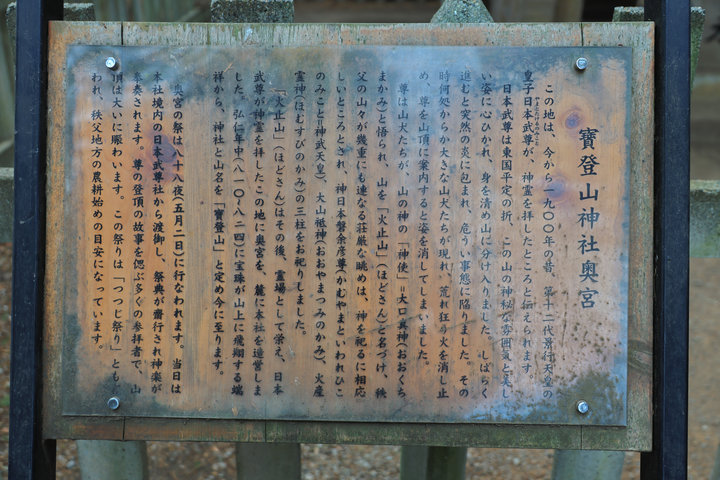 寶登山神社奥宮
この地は、今から一九〇〇年の昔、第十二代景行天皇の
皇子日本武尊が、神霊を拝したところと伝えられます。
やまとたけるのみこと
日本武尊は東国平定の折、この山の神秘な雰囲気と美し
い姿に心ひかれ、身を清め山に分け入りました。しばらく
進むと突然の炎に包まれ、危うい事態に陥りました。その
時何処からか大きな山犬たちが現れ、荒れ狂う火を消し止
め、尊を山頂に案内すると姿を消してしまいました。
尊は山犬たちが、山の神の「神使」=大口真神(おおくち
まかみ)と悟られ、山を「火止山」(ほどさん)と名づけ、秩
父の山々が幾重にも連なる荘厳な眺めは、神を祀るに相応
しいところとされ、神日本磐余彦尊(かむやまといわれひこ
のみこと=神武天皇)、大山祗神(おおやまつみのかみ)、火産
霊神(ほむすびのかみ)の三柱をお祀りしました。
「火止山」(ほどさん)はその後、霊場として栄え、日本
武尊が神霊を拝したこの地に奥宮を、麓に本社を造営しま
した。弘仁年中(八一〇~八二四)に宝珠が山上に飛翔する瑞
祥から、神社と山名を「寶登山」と定め今に至ります。
奥宮の祭は八十八夜(五月二日)に行なわれます。当日は
本社境内の日本武尊社から渡御し、祭典が齋行され神楽が
奉奏されます。尊の登頂の故事を偲ぶ多くの参拝者で、山
頂は大いに賑わいます。この祭りは「つつじ祭り」とも
われ、秩父地方の農耕始めの目安になっています。